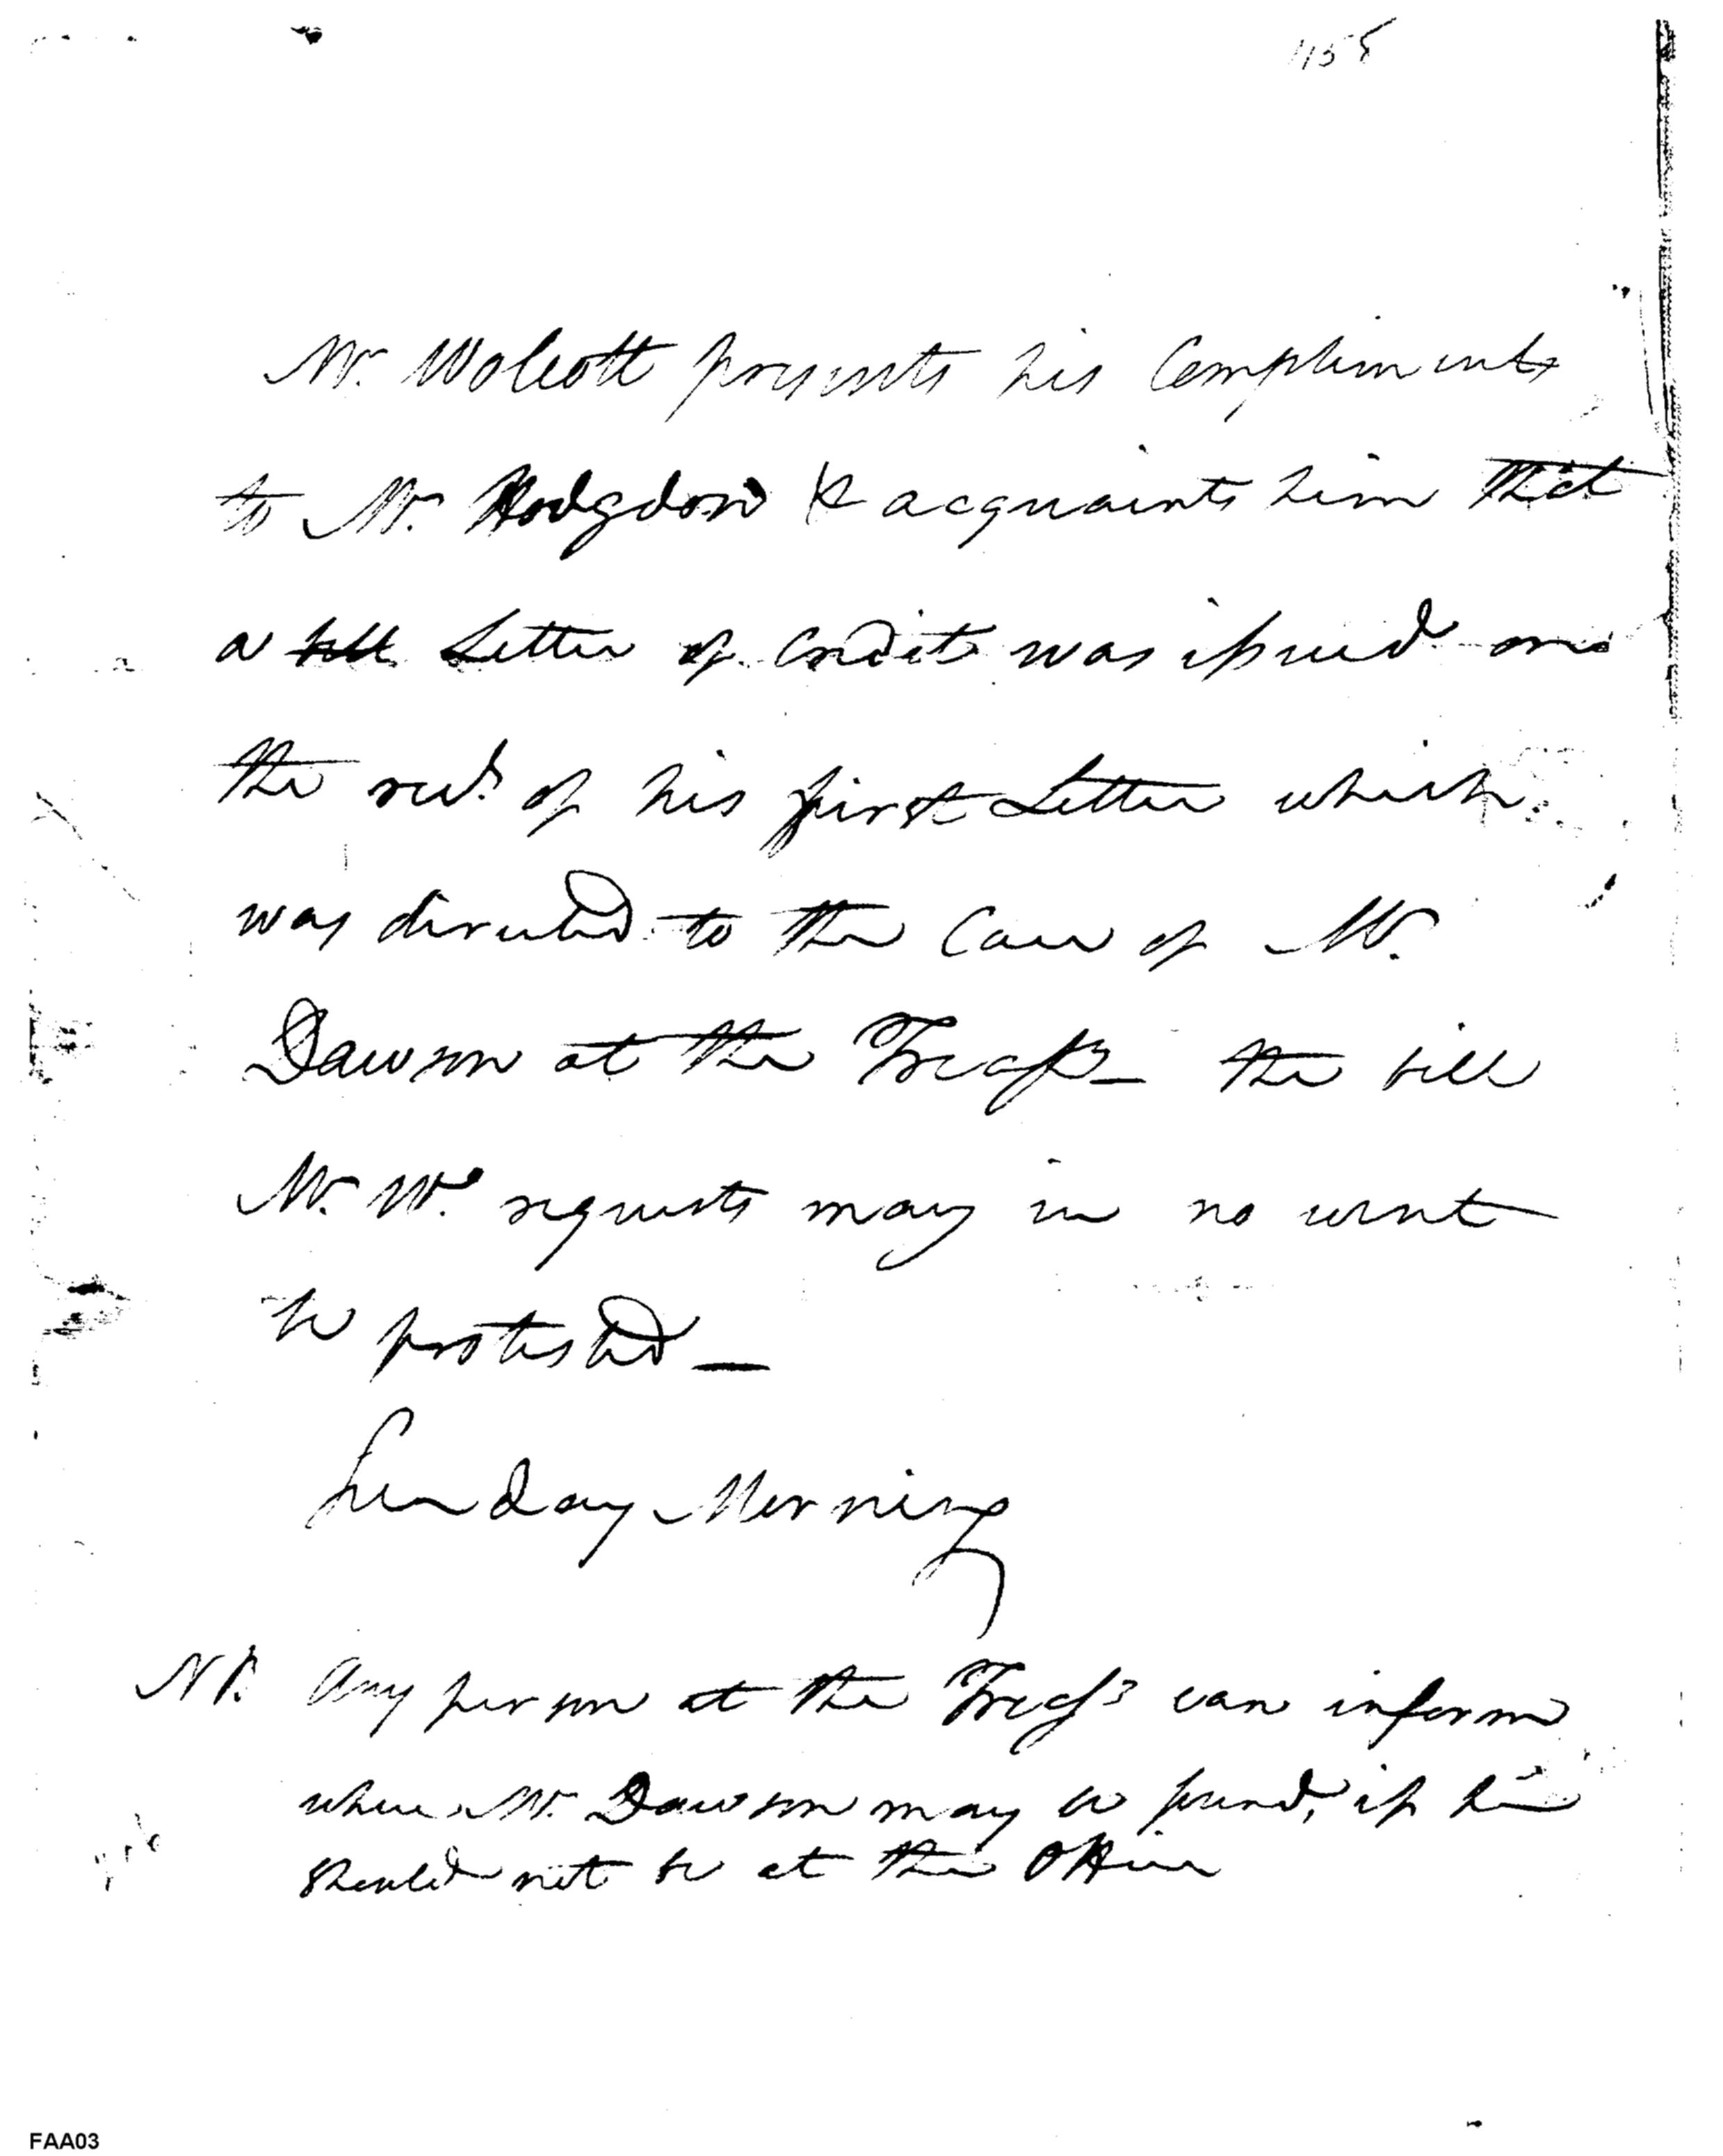 1155
Mr. Wolcott presents his Compliments
to Mr. Hodgdon & acquaints him that
a bill Letter of Credit was issued on
the recd. of his first Letter which
was directed to the Care of Mr.
Dawson at the Treasy— the bill
Mr. W. requests may in no event
be protested —
Sunday Morning
NB. Any person at the Treasy can inform
where Mr. Dawson may be found, if he
should not be at the Office
FAA03